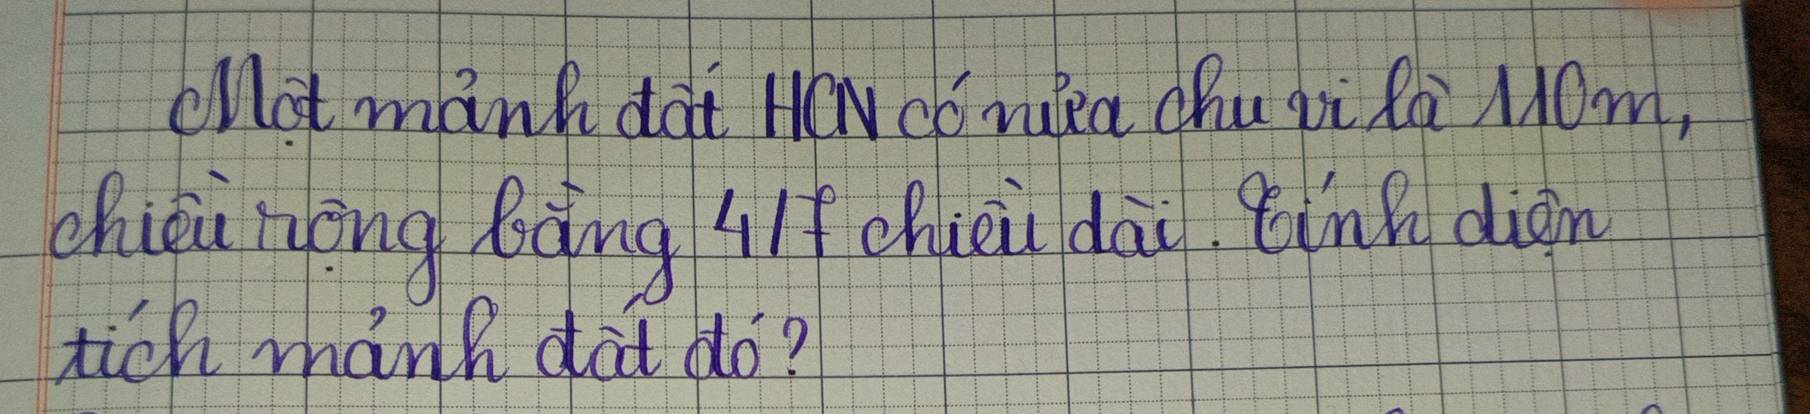 Một mảnh đất HCN có nửa chu vi là 110m,
chiều rộng bằng 4/7 chiều dài. Tính diện
tích mảnh đất đó?